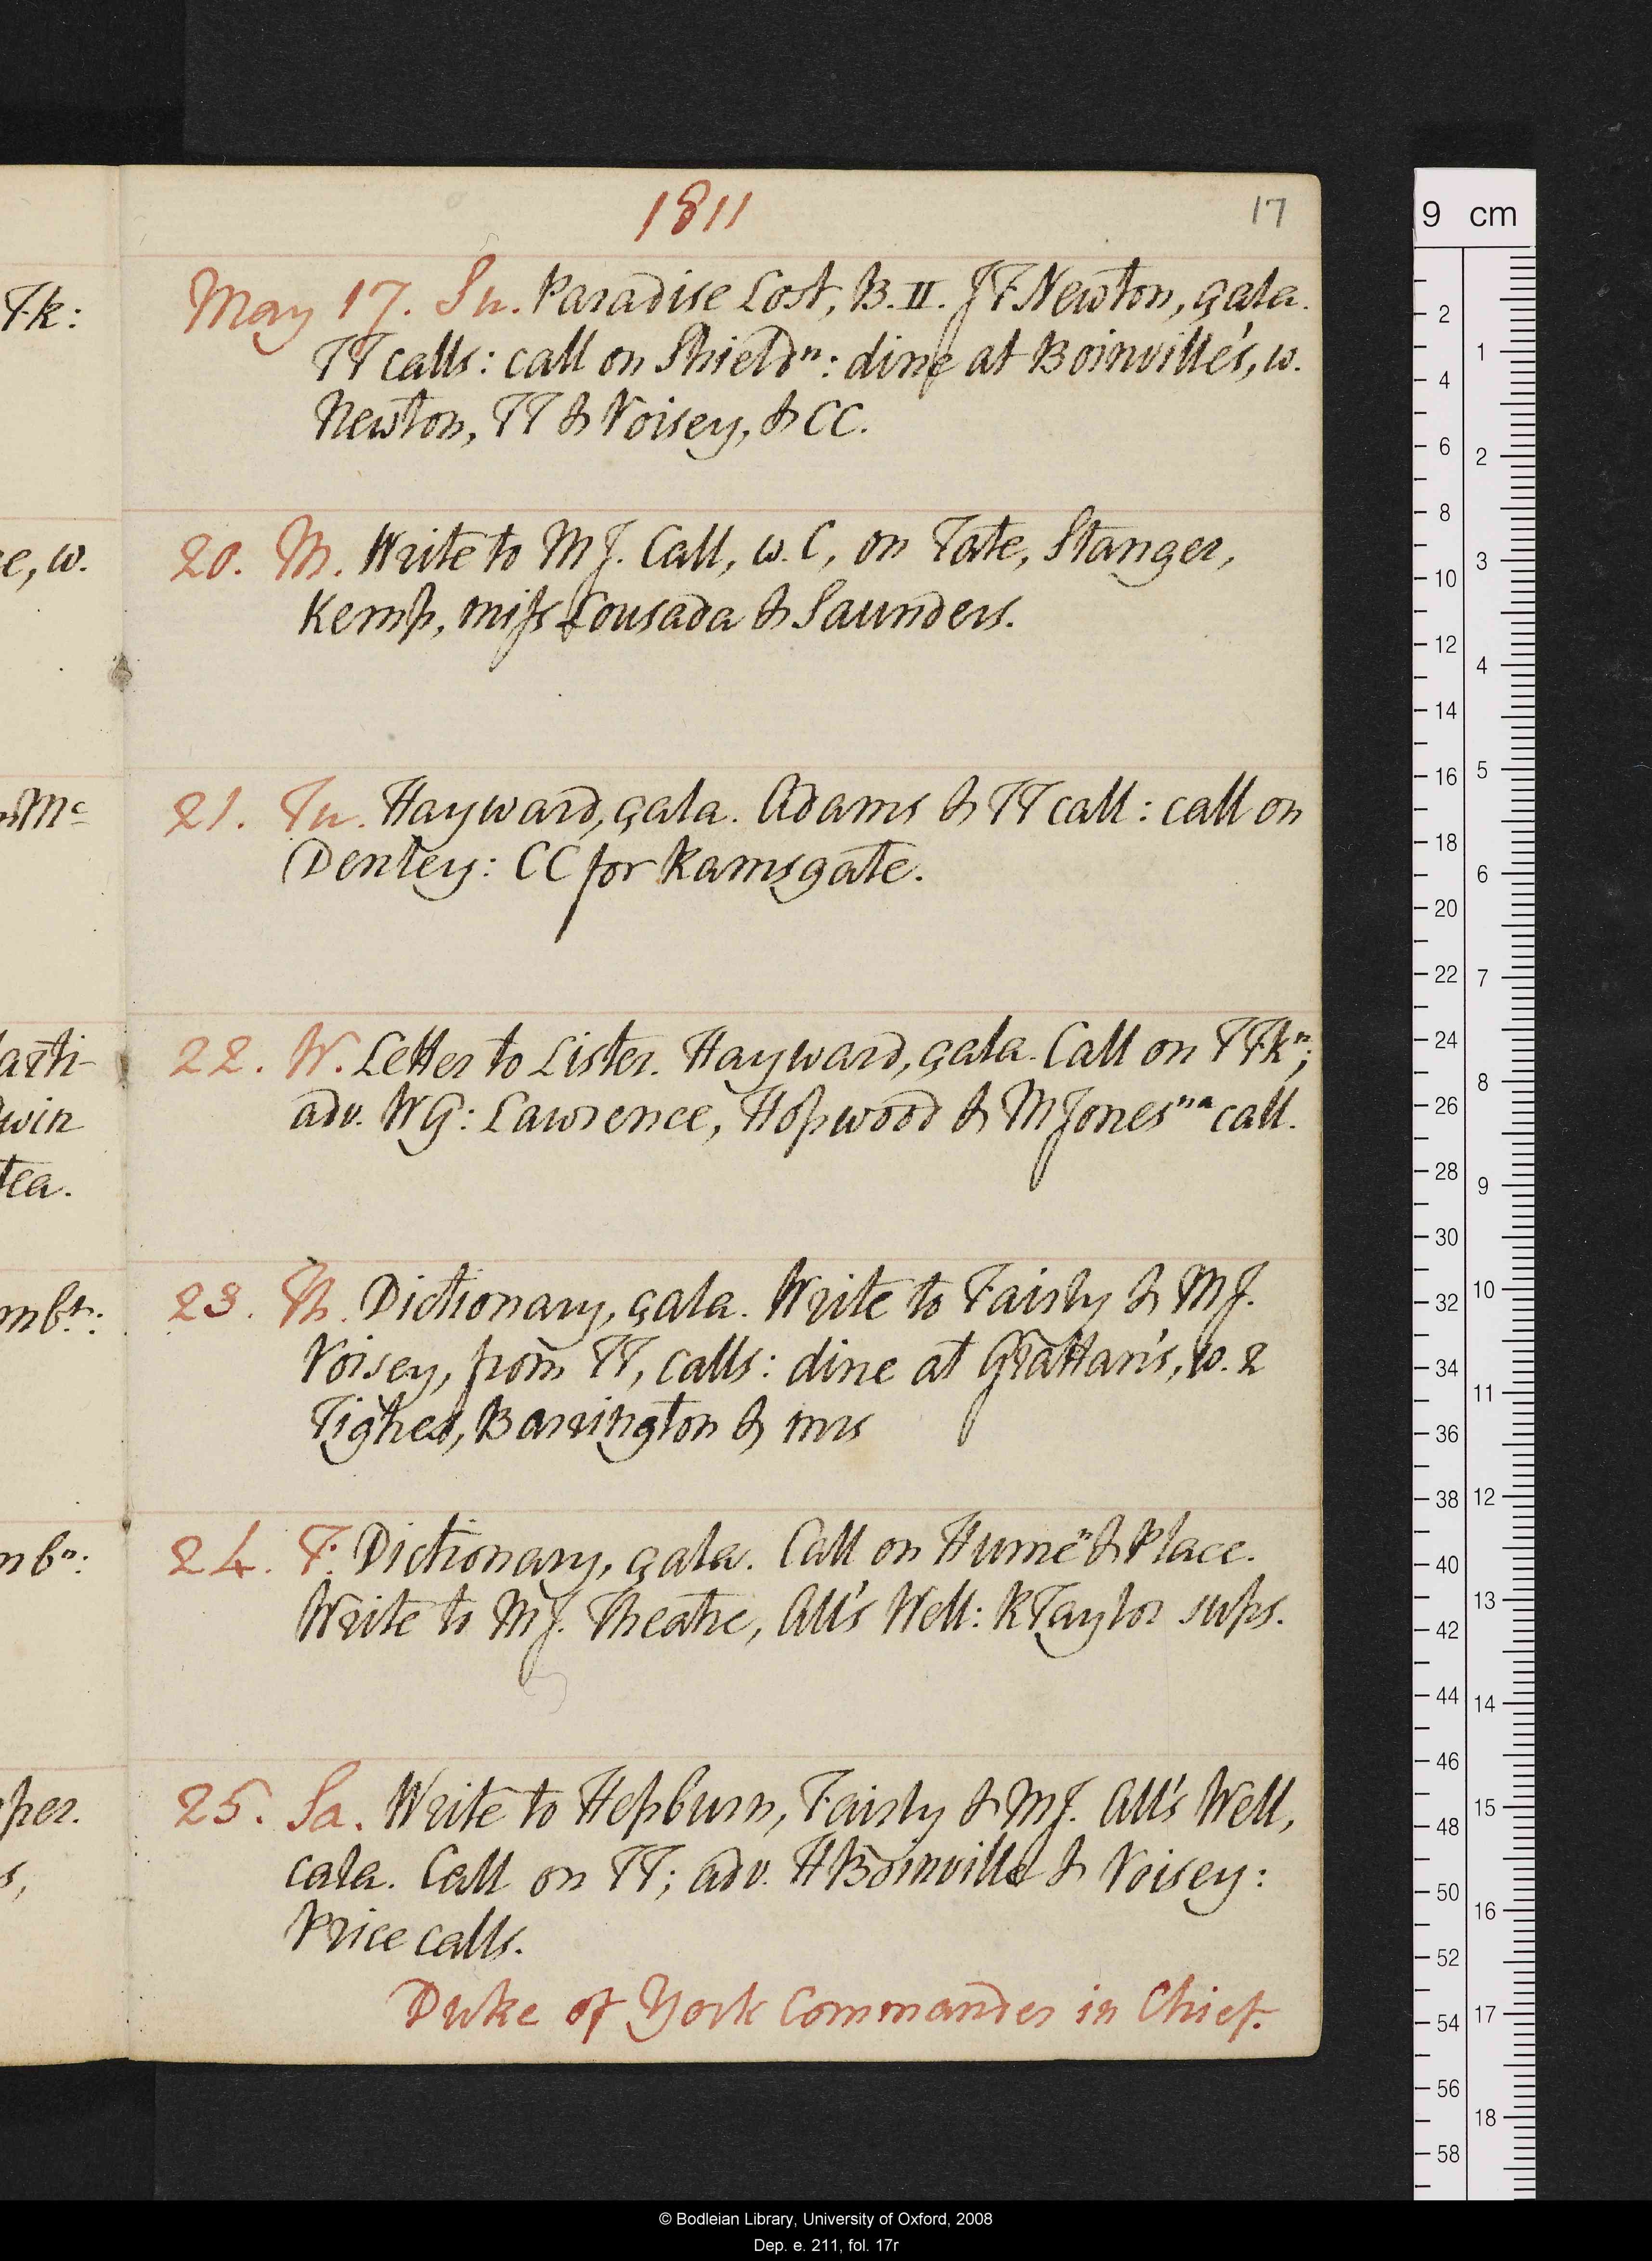 1811
17
May 17. Su. Paradise Lost, B. II. J F Newton, çala.
TT calls: call on Shieldⁿ: dine at Boinville's, w.
Newton, TT & Voisey, & CC.
20. M. Write to MJ. Call, w. C, on Tate, Stanger,
Kemp, miss Lousada & Saunders.
21. Tu. Hayward, çala. Adams & TT call: call on
Dentey: CC for Ramsgate.
22. W. Letter to Lister. Hayward, çala. Call on TFkⁿ;
adv. WG: Lawrence, Hopwood & MJonesⁿᵃ call.
23. Th. Dictionary, çala. Write to Fairly & MJ.
Voisey, from TT, calls: dine at Grattan's, w. 2
Tighes, Barrington & mrs
24. F. Dictionary, çala. Call on Humeⁿ & Place.
Write to MJ. Theatre, All's Well: RTaylor sups.
25. Sa. Write to Hepburn, Fairly & MJ. All's Well,
çala. Call on TT; adv. HBoinville & Voisey:
Price calls.
Duke of York Commander in Chief.
Fk:
e, w.
Mc
win
tea.
mbⁿ:
mbⁿ:
per.
s,
9 cm
2
4
6
8
10
12
14
16
18
20
22
24
26
28
30
32
34
36
38
40
42
44
46
48
50
52
54
56
58
1
2
3
4
5
6
7
8
9
10
11
12
13
14
15
16
17
18
© Bodleian Library, University of Oxford, 2008
Dep. e. 211, fol. 17r